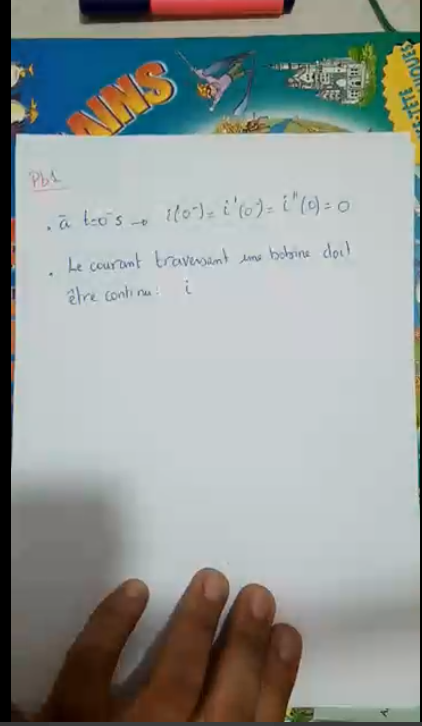 AINS
TÊTE
IQUES
Pb1
. à t=0⁻s → i(0⁻) = i'(0⁻) = i''(0) = 0
. Le courant traversant une bobine doit
être continu : i